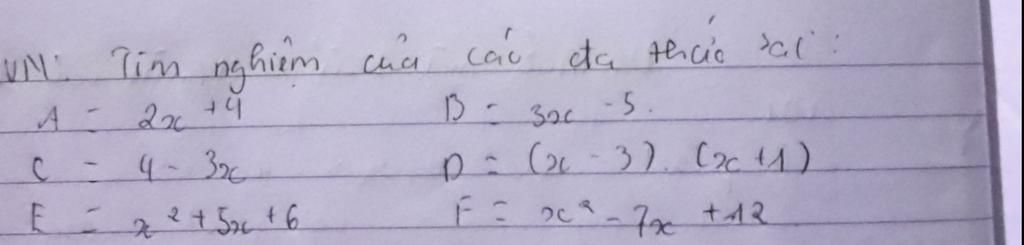 VN: Tìm nghiệm của các đa thức sau:
A = 2x + 4 B = 3x - 5.
C = 4 - 3x D = (x - 3). (x + 1)
E = x² + 5x + 6 F = x² - 7x + 12